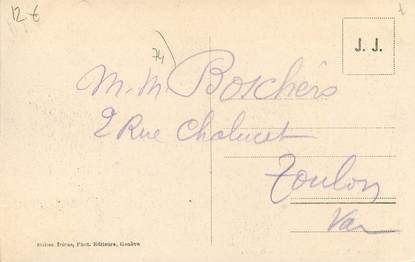 12 €
74
J. J.
M. M. Boschers
2 Rue Chalucet
Toulon
Var
Jullien frères, Phot. Editeurs, Genève